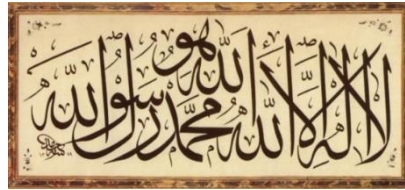 لا اله الا الله هو الله محمد رسول الله